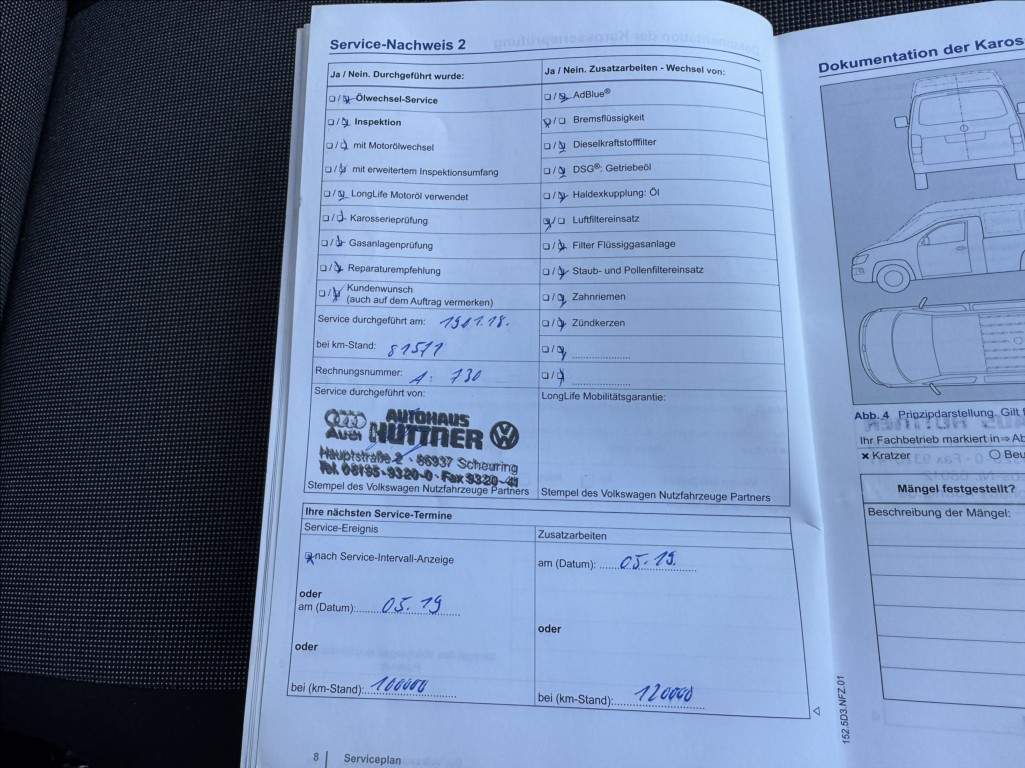 Service-Nachweis 2
Ja / Nein. Durchgeführt wurde:
Ölwechsel-Service
Inspektion
mit Motorölwechsel
mit erweitertem Inspektionsumfang
LongLife Motoröl verwendet
Karosserieprüfung
Gasanlagenprüfung
Reparaturempfehlung
Kundenwunsch
(auch auf dem Auftrag vermerken)
Service durchgeführt am:
bei km-Stand: 81511
Rechnungsnummer: 730
Service durchgeführt von:
AUTOHAUS
Audi HÜTTNER
Hauptstraße 2 · 86937 Scheuring
Tel. 08195-9320-0 · Fax 9320-41
Stempel des Volkswagen Nutzfahrzeuge Partners
Ja / Nein. Zusatzarbeiten - Wechsel von:
AdBlue®
Bremsflüssigkeit
Dieselkraftstofffilter
DSG®: Getriebeöl
Haldexkupplung: Öl
Luftfiltereinsatz
Filter Flüssiggasanlage
Staub- und Pollenfiltereinsatz
Zahnriemen
Zündkerzen
LongLife Mobilitätsgarantie:
Stempel des Volkswagen Nutzfahrzeuge Partners
Ihre nächsten Service-Termine
Service-Ereignis
nach Service-Intervall-Anzeige
oder
am (Datum): 05.19
oder
bei (km-Stand): 100000
Zusatzarbeiten
am (Datum): 05.19.
oder
bei (km-Stand): 120000
8 | Serviceplan
152.5D3.NFZ.01
Dokumentation der Karos
Abb. 4 Prinzipdarstellung. Gilt f
Ihr Fachbetrieb markiert in⇒Ab
× Kratzer ○ Beu
Mängel festgestellt?
Beschreibung der Mängel: